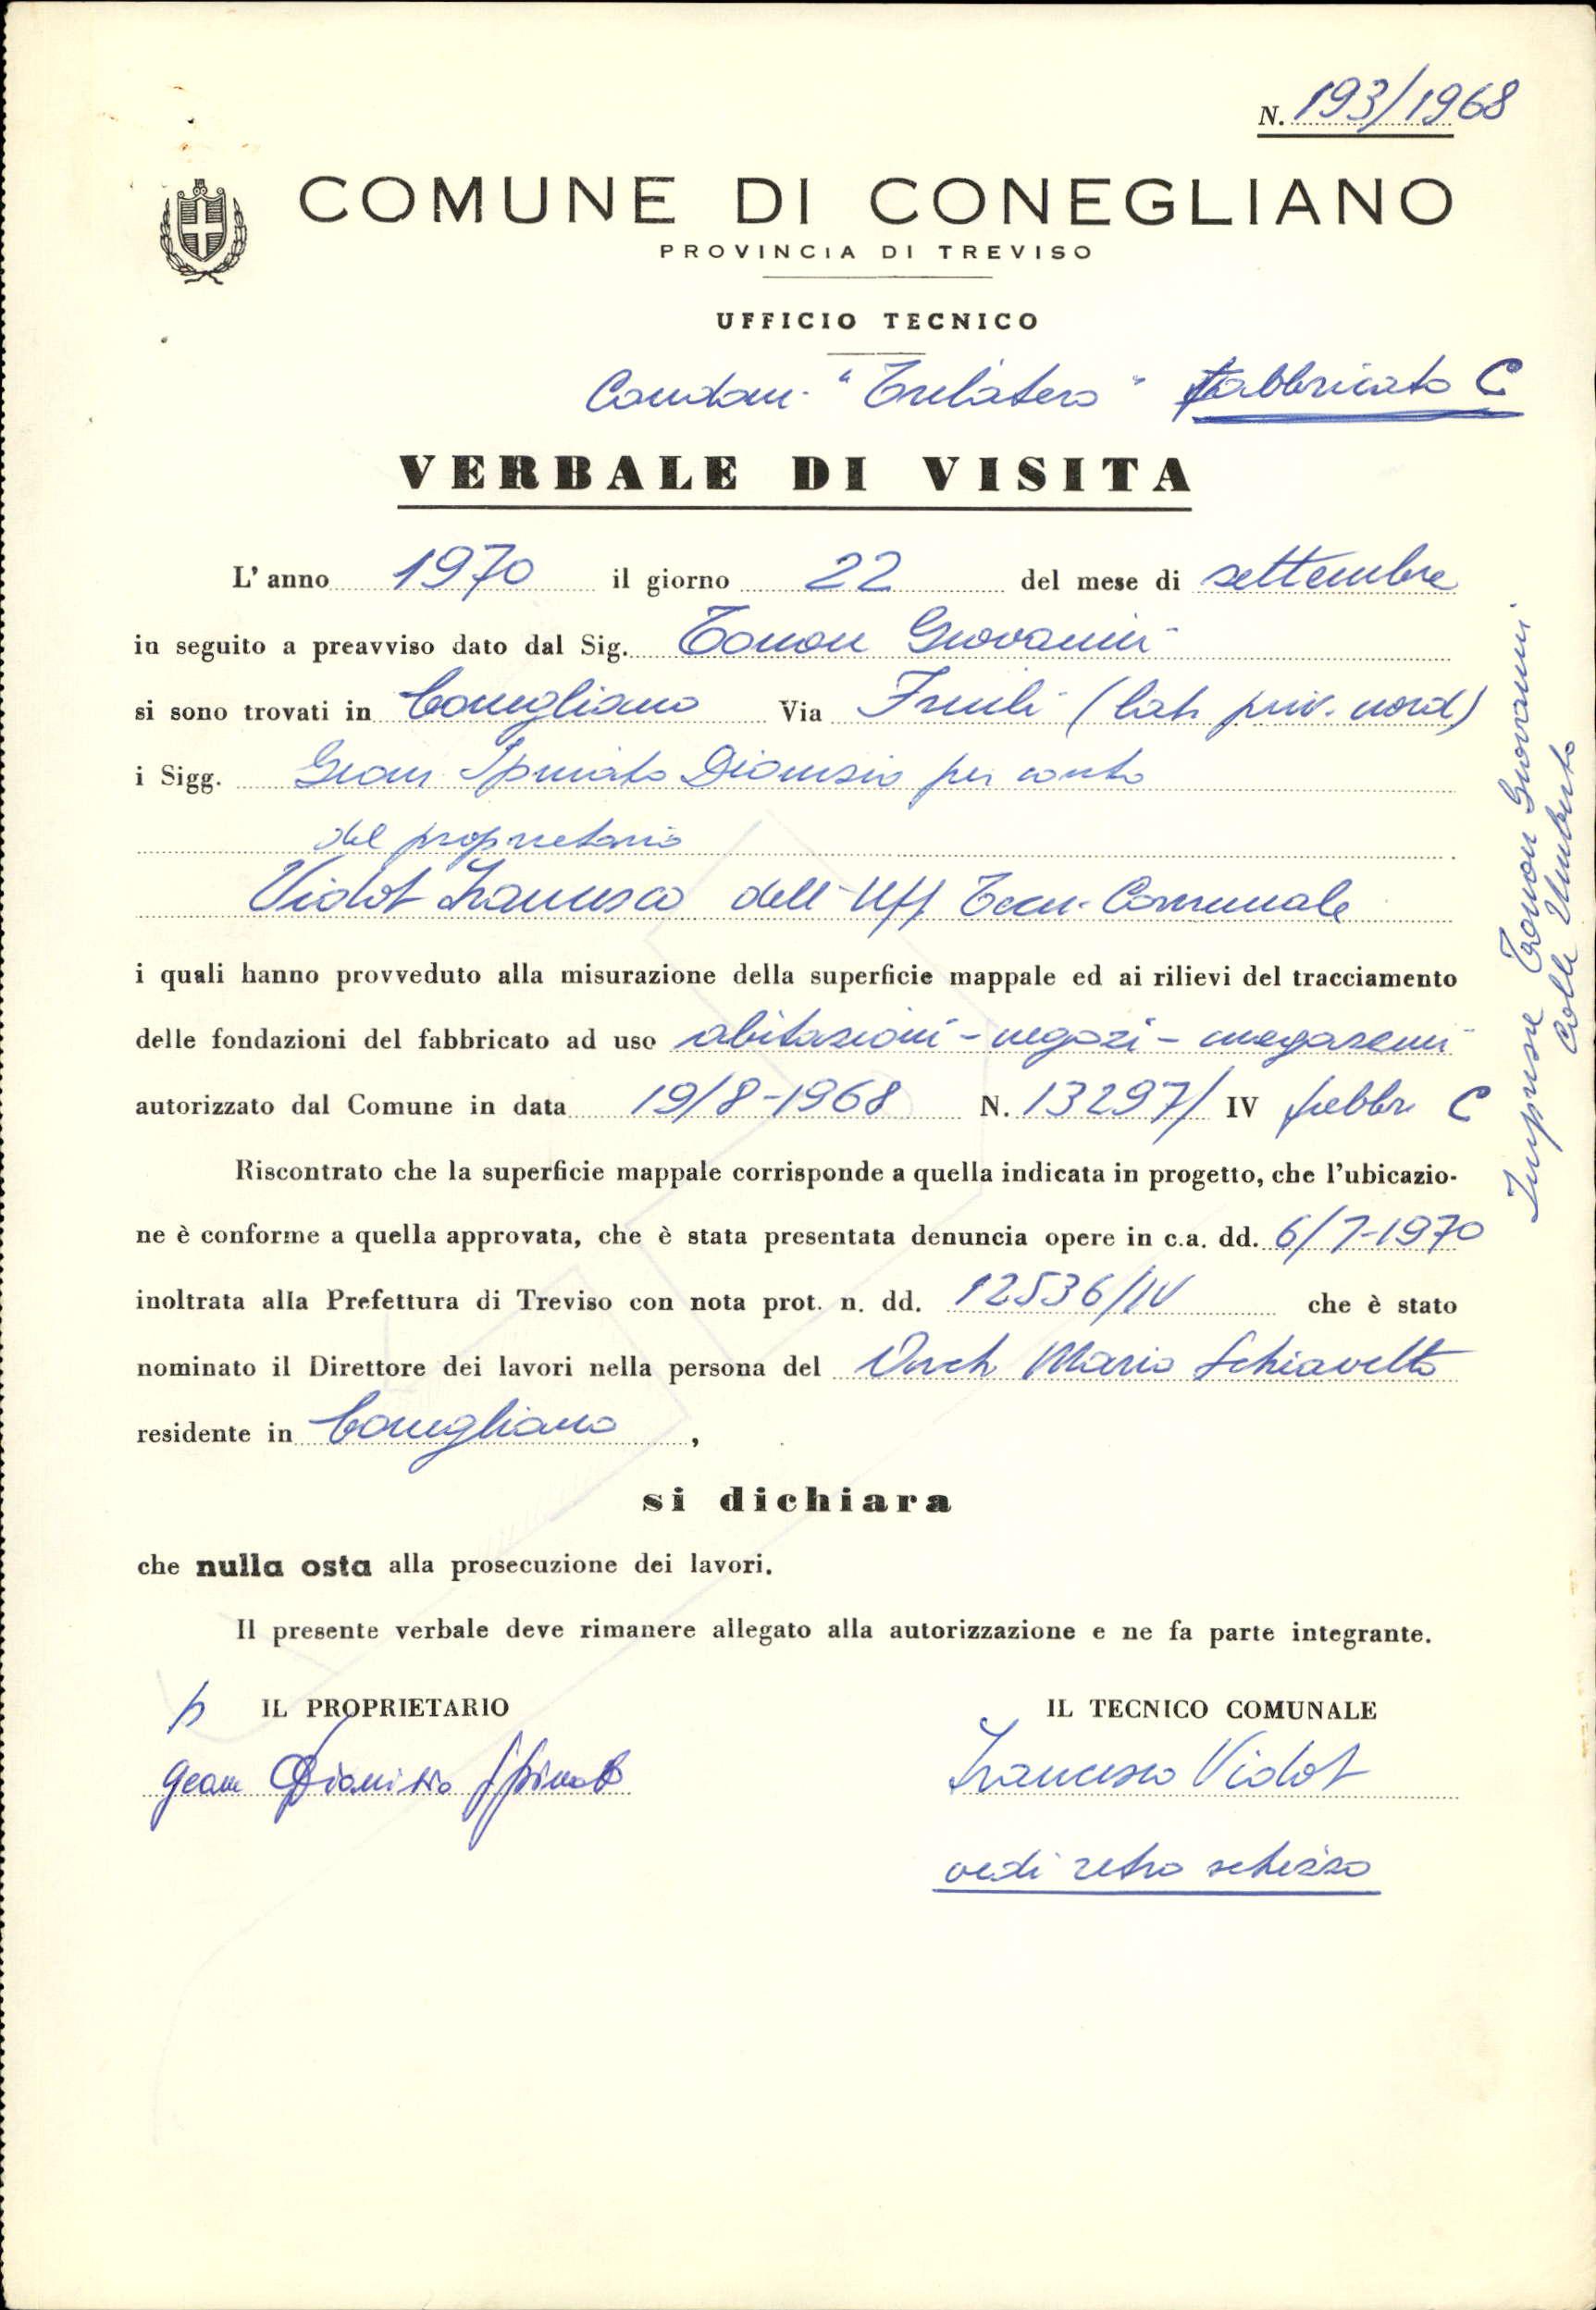 N. 193/1968
COMUNE DI CONEGLIANO
PROVINCIA DI TREVISO
UFFICIO TECNICO
Condom. "Trilatero" Fabbricato C
VERBALE DI VISITA
L'anno 1970 il giorno 22 del mese di settembre
in seguito a preavviso dato dal Sig. Tonon Giovanni
si sono trovati in Conegliano Via Friuli (lato priv. nord)
i Sigg. Geom Spinato Dionisio per conto
del proprietario
Vidot Francesco dell'Uff Tecn. Comunale
i quali hanno provveduto alla misurazione della superficie mappale ed ai rilievi del tracciamento
delle fondazioni del fabbricato ad uso abitazioni - negozi - magazzini
autorizzato dal Comune in data 19/8-1968 N. 13297/ IV fabbr C
Riscontrato che la superficie mappale corrisponde a quella indicata in progetto, che l'ubicazio-
ne è conforme a quella approvata, che è stata presentata denuncia opere in c.a. dd. 6/7-1970
inoltrata alla Prefettura di Treviso con nota prot. n. dd. 12536/IV che è stato
nominato il Direttore dei lavori nella persona del Mario Schiavetto
residente in Conegliano ,
si dichiara
che nulla osta alla prosecuzione dei lavori.
Il presente verbale deve rimanere allegato alla autorizzazione e ne fa parte integrante.
p IL PROPRIETARIO
geom Dionisio Spinato
IL TECNICO COMUNALE
Francesco Vidot
vedi retro schizzo
Impresa Tonon Giovanni
Colle Umberto